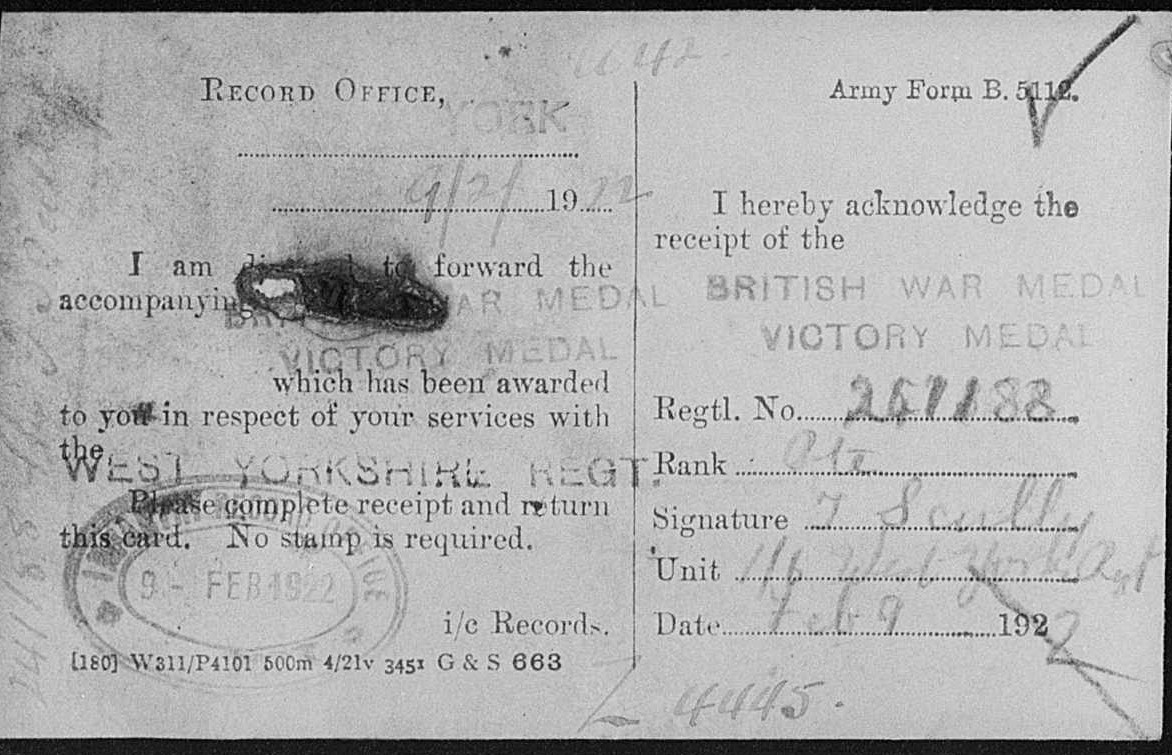 RECORD OFFICE,
YORK
9/2/ 1922
I am directed to forward the
accompanying BRITISH WAR MEDAL
VICTORY MEDAL
which has been awarded
to you in respect of your services with
the
WEST YORKSHIRE REGT.
Please complete receipt and return
this card. No stamp is required.
RECORD OFFICE
9 - FEB 1922
i/c Records.
[180] W311/P4101 500m 4/21v 3451 G & S 663
Army Form B. 5112.
I hereby acknowledge the
receipt of the
BRITISH WAR MEDAL
VICTORY MEDAL
Regtl. No.
Rank Pte
Signature T Scully
Unit 1/6 West York Rgt
Date Feb 9 1922
4445.